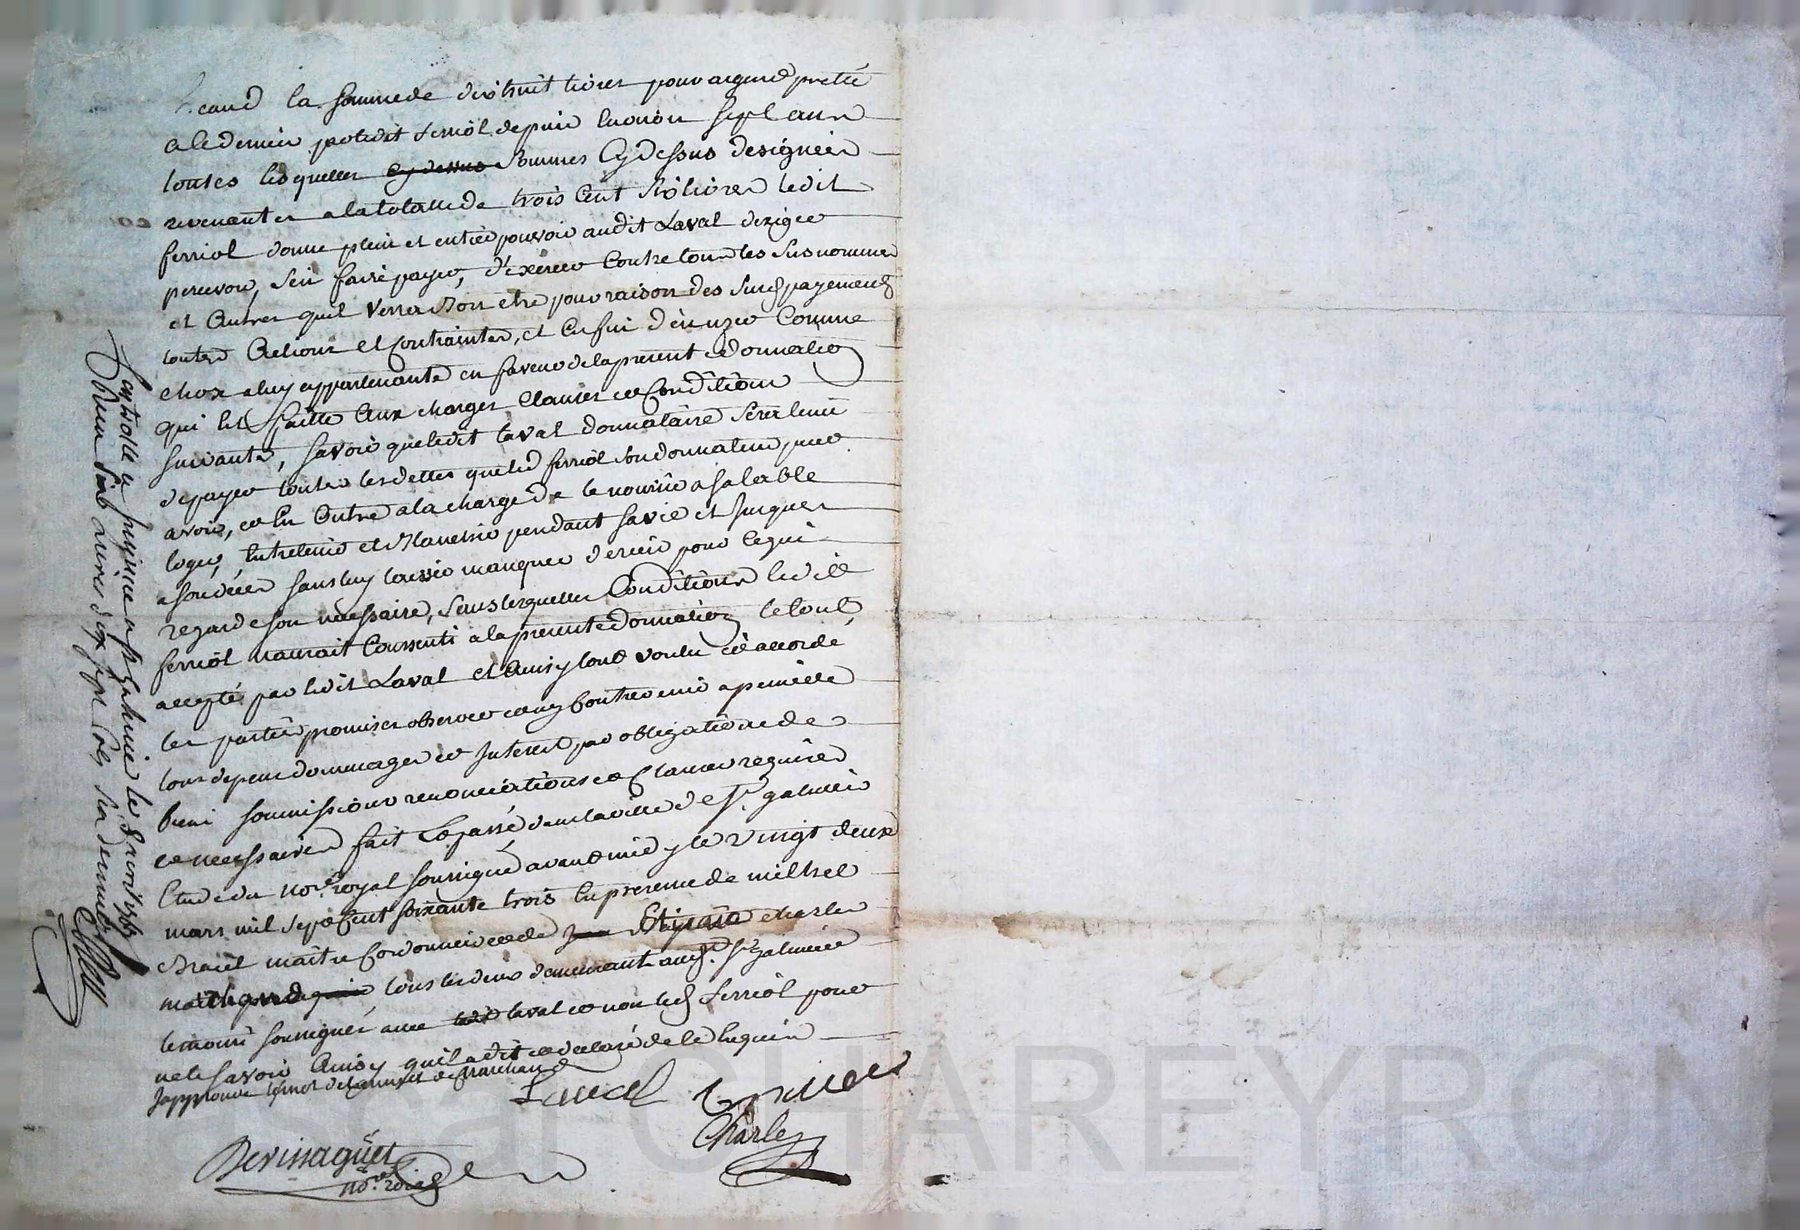 la somme de dixhuit livres pour argent preté
a ce dernier par ledit ferriol depuis environ sept ans
toutes lesquelles cy dessus sommes cy dessus designées
revenantes a la totalle de trois cent six livres ledit
ferriol donne plein et entier pouvoir audit Laval d'exiger
percevoir, s'en faire payer, d'exercer contre tous les susnommes
et autres quil verra bon etre pour raison des susd payements
toutes actions et contraintes, et en fin d'en uzer comme
chose a luy appartenante en faveur de la presente donnation
qui est faitte aux charges clauses et conditions
suivantes, savoir que ledit Laval donnataire sera tenu
de payer toutes les dettes que led ferriol son donnateur peut
avoir, et en outre a la charge de le nourrir a sa table
loger, entretenir et blanchir pendant sa vie et jusques
a son décès sans luy laisser manquer de rien pour ce qui
regarde son nécessaire, sans lesquelles conditions ledit
ferriol n'aurait consenti a la presente donnation le tout
accepté par ledit Laval et ainsy tout voulu et accordé
les parties promises observer et n'y contrevenir a peine de
tous depens dommages et interest par obligation de
biens soumissions renonciations et clauses requises
et necessaires fait et passé dans la ville de St. galmier
Etude du nore. royal soussigné avant midy le vingt deux
mars mil sept cent soixante trois en presence de michel
maitre cordonnier et de Etienne charles
marchand tous les deux demeurant aud. St galmier
temoins soussignés avec Laval et non led ferriol pour
ne le savoir ainsy qu'il a dit et declaré de ce enquis
J'approuve le mot de et marchand
Laval
Charles
Devissaguet
nore. roial
Controllé et insinué a St galmier le